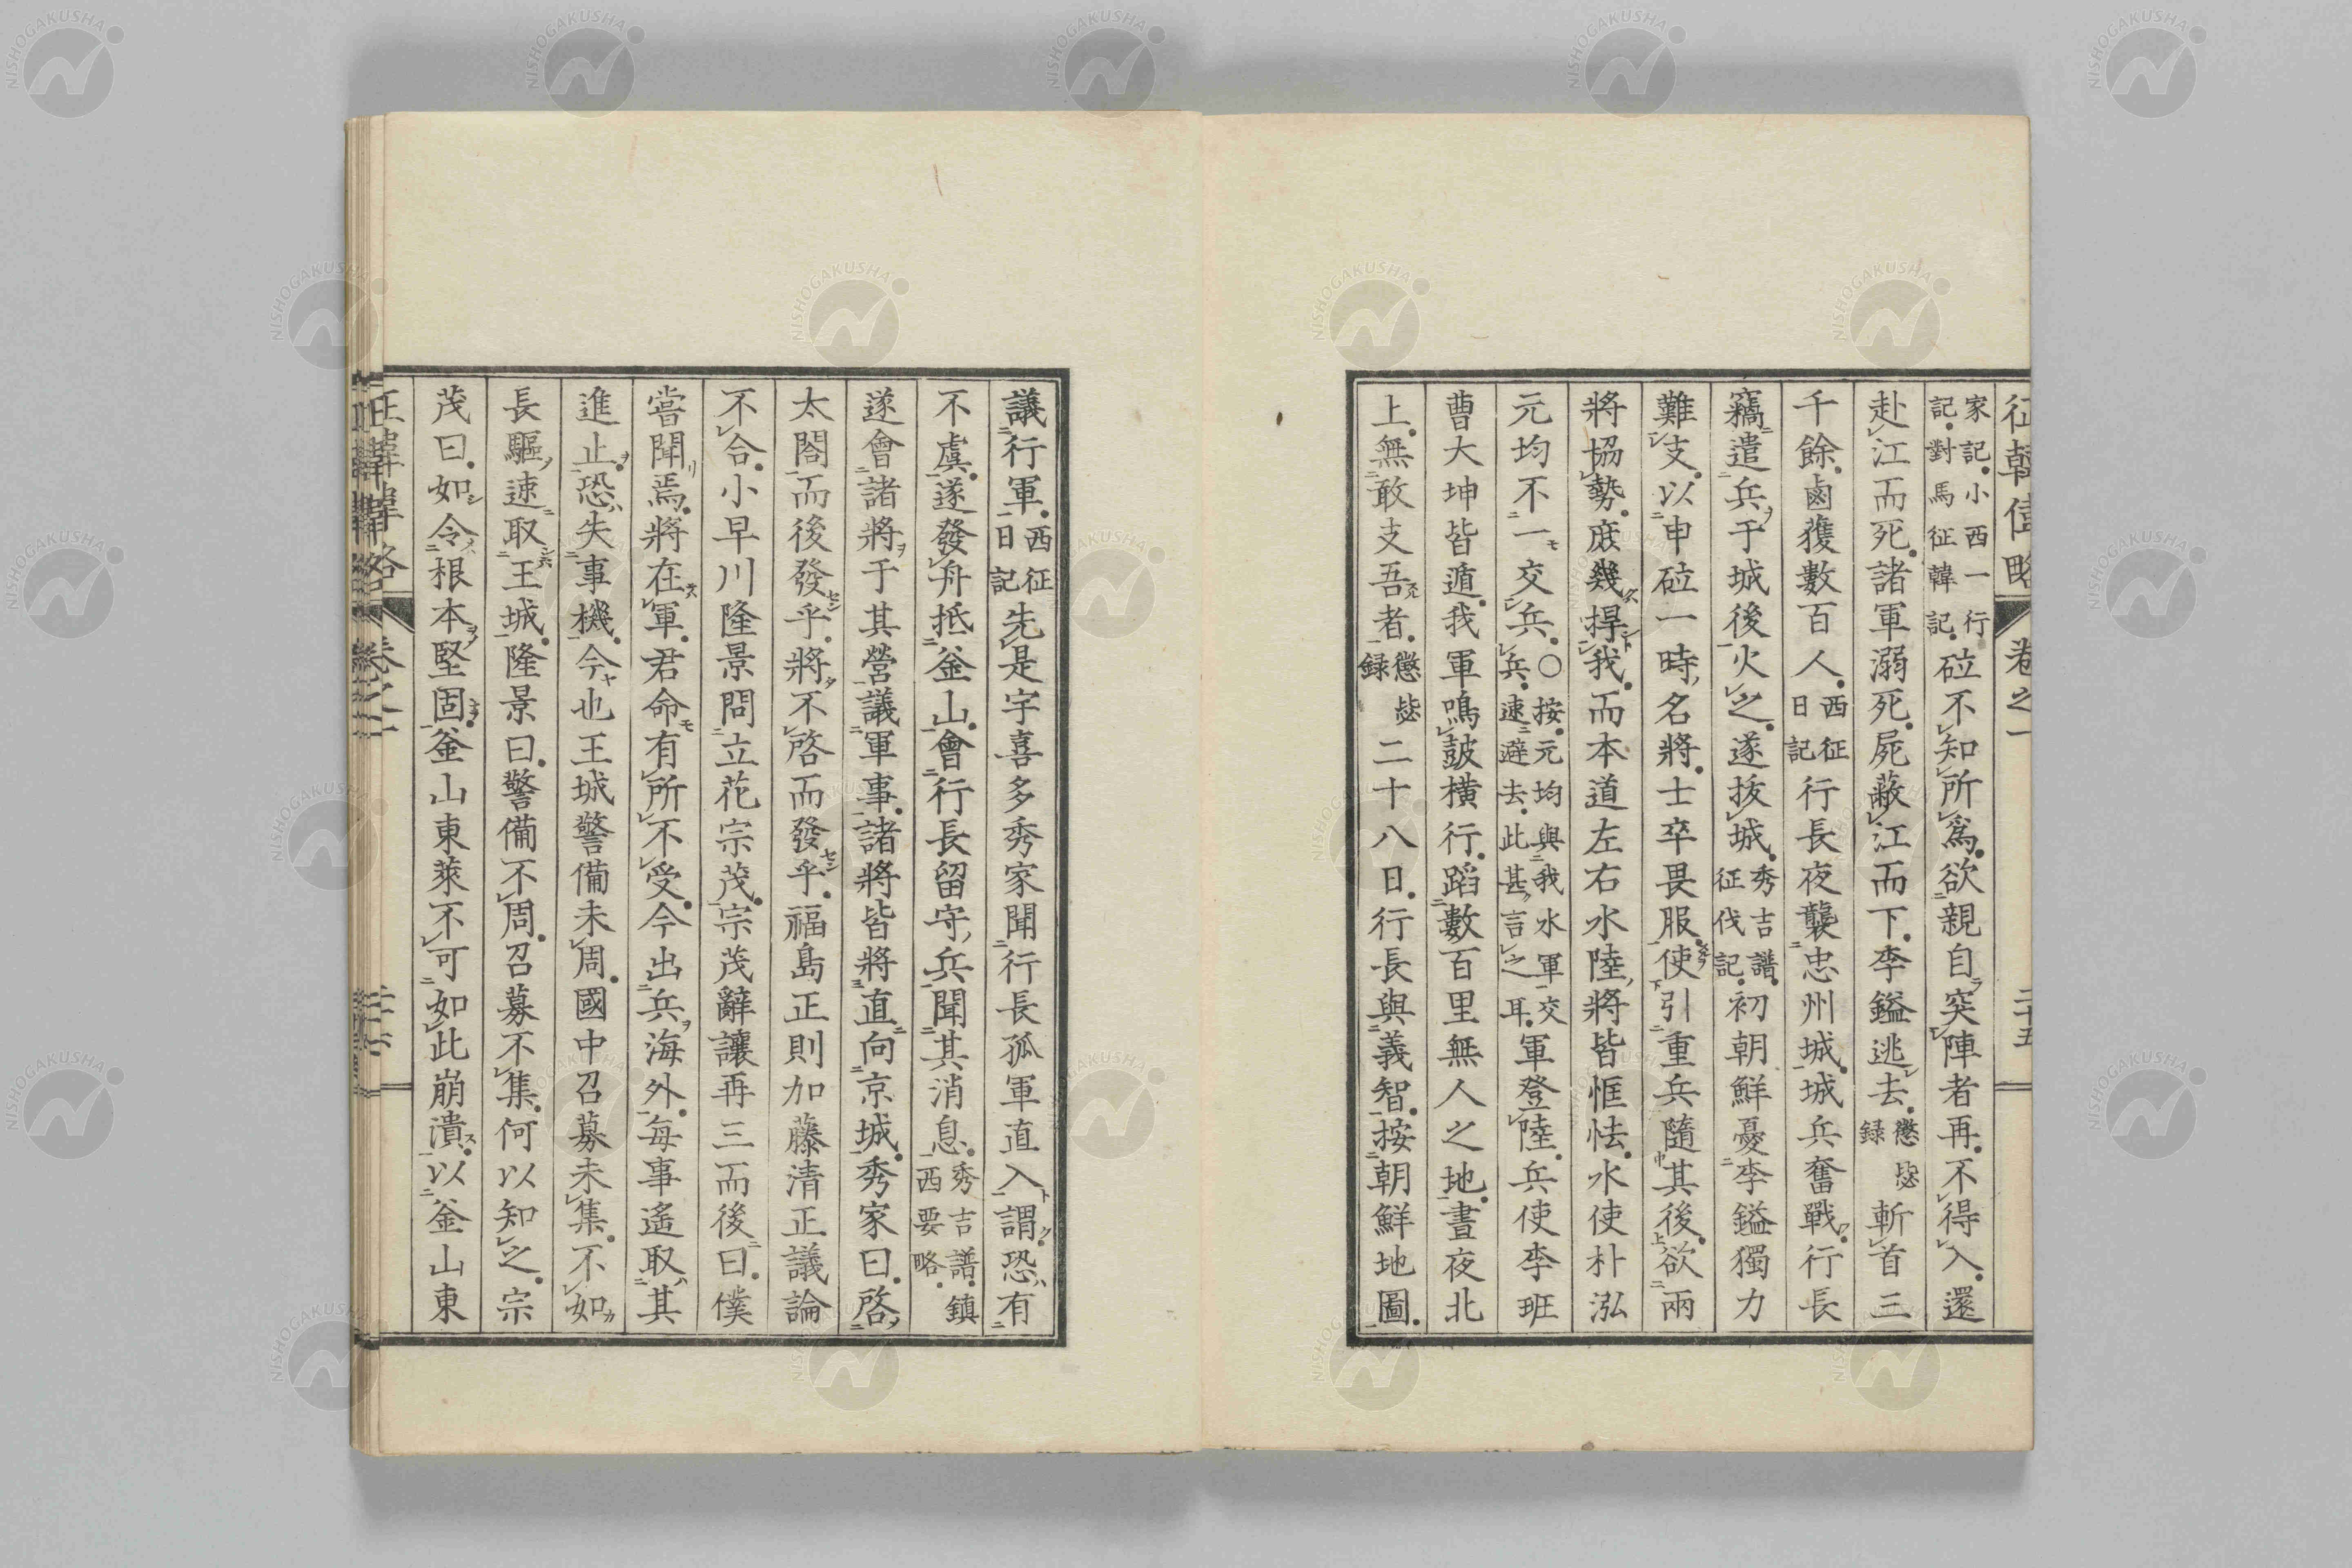 征韓偉略 卷之一 二十五
家記。小西一行記。對馬征韓記。砬不知所爲。欲親自突陣者再。不得入。還
赴江而死。諸軍溺死。屍蔽江而下。李鎰逃去。懲毖録斬首三
千餘。鹵獲數百人。西征日記行長夜襲忠州城。城兵奮戰。行長
竊遣兵于城後火之。遂抜城。秀吉譜。征伐記。初朝鮮憂李鎰獨力
難支。以申砬一時名將。士卒畏服使引重兵隨其後。欲兩
將協勢。庶幾捍我。而本道左右水陸將皆恇怯。水使朴泓
元均不一交兵。○按。元均與我水軍交兵。速避去。此甚言之耳。軍登陸。兵使李班
曹大坤皆遁。我軍鳴皷横行。蹈數百里無人之地。晝夜北
上。無敢支吾者。懲毖録二十八日。行長與義智。按朝鮮地圖。
議行軍。西征日記先是宇喜多秀家聞行長孤軍直入謂。恐有
不虞。遂發舟抵釜山。會行長留守兵聞其消息。秀吉譜。鎮西要略。
遂會諸將于其營議軍事。諸將皆將直向京城。秀家曰。啓
太閤而後發乎。將不啓而發乎。福島正則加藤清正議論
不合。小早川隆景問立花宗茂。宗茂辭讓再三而後曰。僕
嘗聞焉。將在軍。君命有所不受。今出兵海外。毎事遙取其
進止。恐失事機。今也王城警備未周。國中召募未集。不如
長驅速取王城。隆景曰。警備不周。召募不集。何以知之。宗
茂曰。如令根本堅固。釜山東萊不可如此崩潰。以釜山東